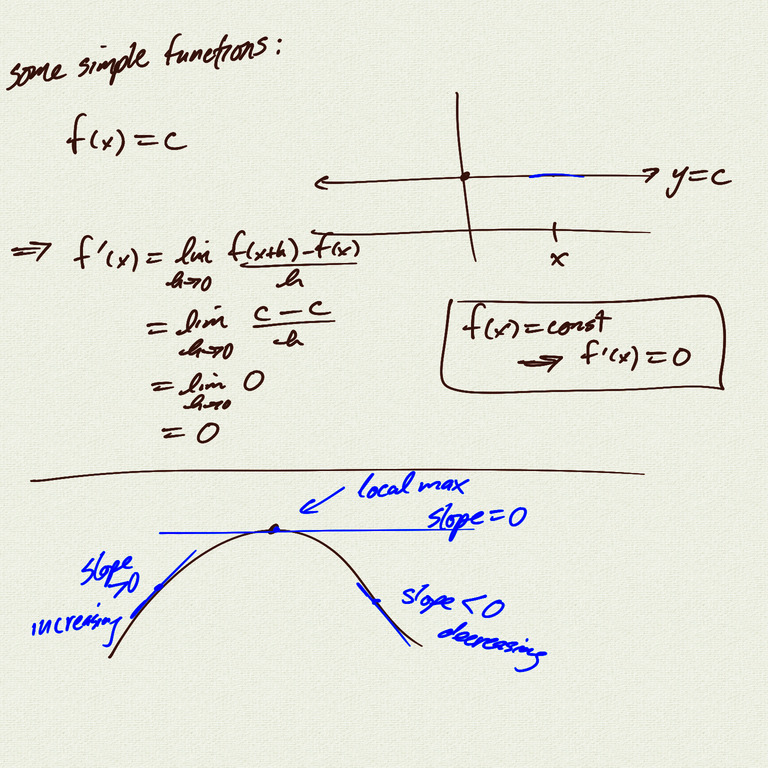 some simple functions:
f(x) = c
y = c
x
⇒ f'(x) = lim h→0 f(x+h) - f(x) / h
= lim h→0 c - c / h
= lim h→0 0
= 0
f(x) = const
⇒ f'(x) = 0
local max
slope = 0
slope
>0
increasing
slope < 0
decreasing